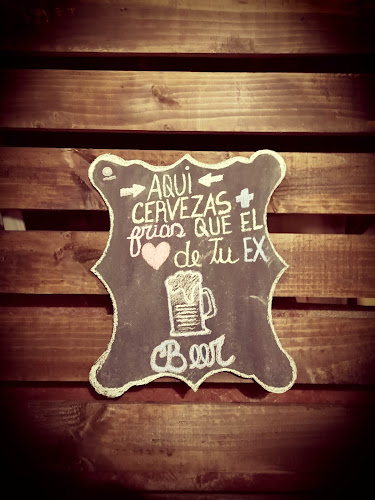 → AQUI ←
CERVEZAS +
frias QUE EL
♥ de Tu EX
Beer